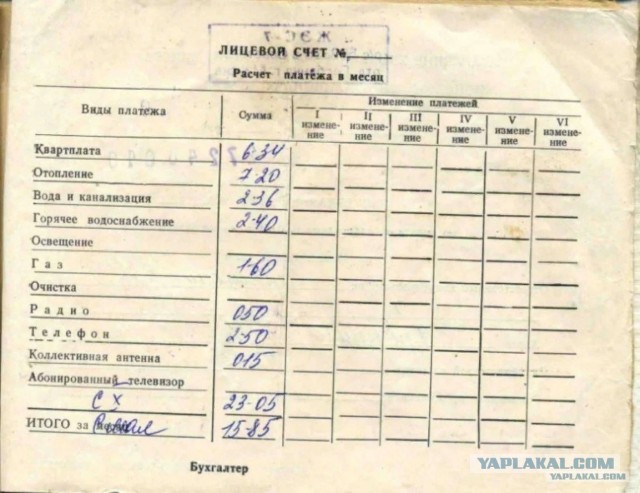 ЖЭС-7
ЛИЦЕВОЙ СЧЕТ №
Расчет платежа в месяц
Виды платежа Сумма Изменение платежей
I измене- II измене- III измене- IV измене- V измене- VI измене-
ние ние ние ние ние ние
Квартплата 6-34
Отопление 7-20
Вода и канализация 2-36
Горячее водоснабжение 2-40
Освещение
Газ 1-60
Очистка
Радио 0 50
Телефон 2-50
Коллективная антенна 0 15
Абонированный телевизор
СХ 23-05
ИТОГО за 15-85
Бухгалтер
YAPLAKAL.COM
YAPLAKAL.COM